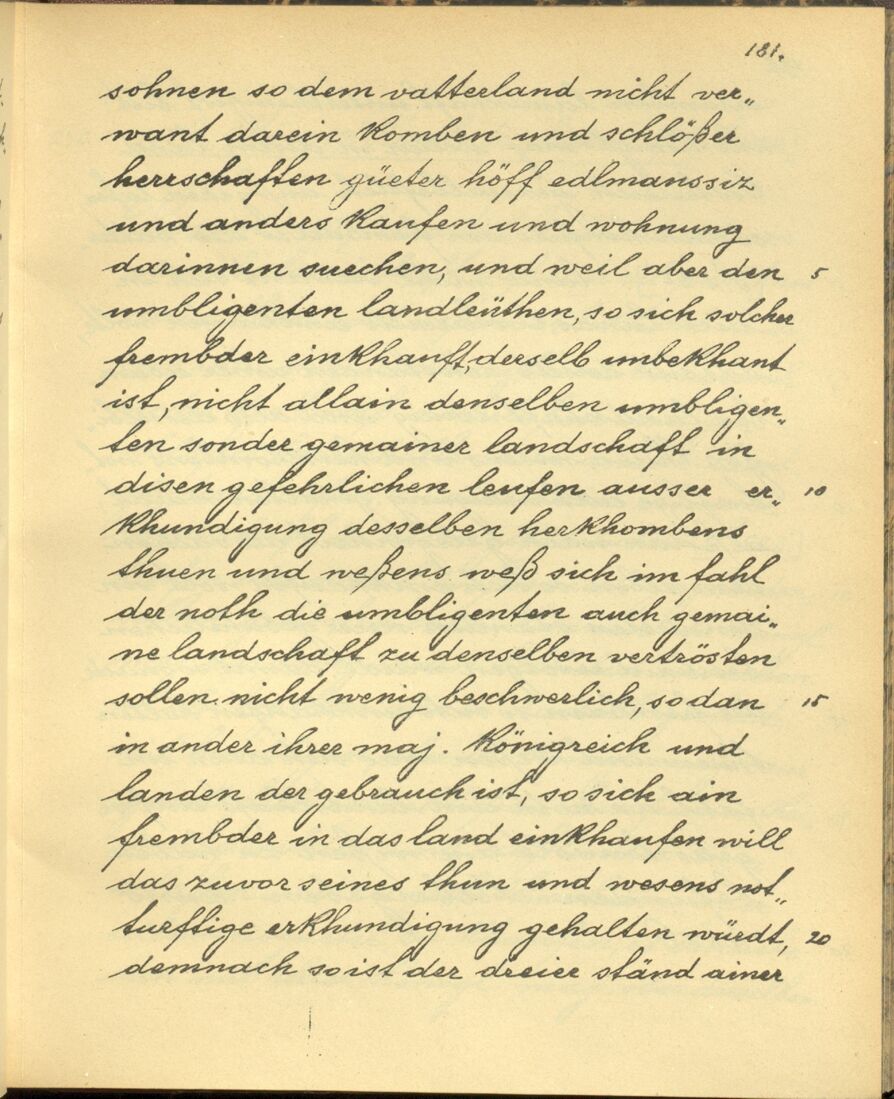 181.
sohnen so dem vatterland nicht ver„
want darein komben und schlößer
herrschaften güeter höff edlmanssiz
und anders kaufen und wohnung
darinnen suechen, und weil aber den 5
umbligenten landleüthen, so sich solcher
frembder einkhauft, derselb unbekhant
ist, nicht allain denselben umbligen„
ten sonder gemainer landschaft in
disen gefehrlichen leufen ausser er„ 10
khundigung desselben herkhombens
thuen und weßens weß sich im fahl
der noth die umbligenten auch gemai„
ne landschaft zu denselben vertrösten
sollen nicht wenig beschwerlich, so dan 15
in ander ihrer maj. königreich und
landen der gebrauch ist, so sich ain
frembder in das land einkhaufen will
das zuvor seines thun und wesens not„
turftige erkhundigung gehalten würdt, 20
demnach so ist der dreier ständ ainer